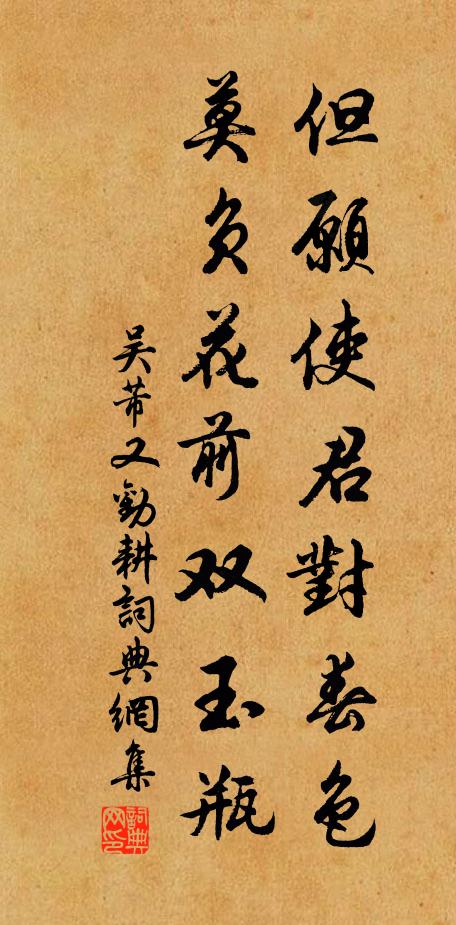 但願使君對春色
莫負花前双玉瓶
吴芾又勸耕詞典網集
詞典網印